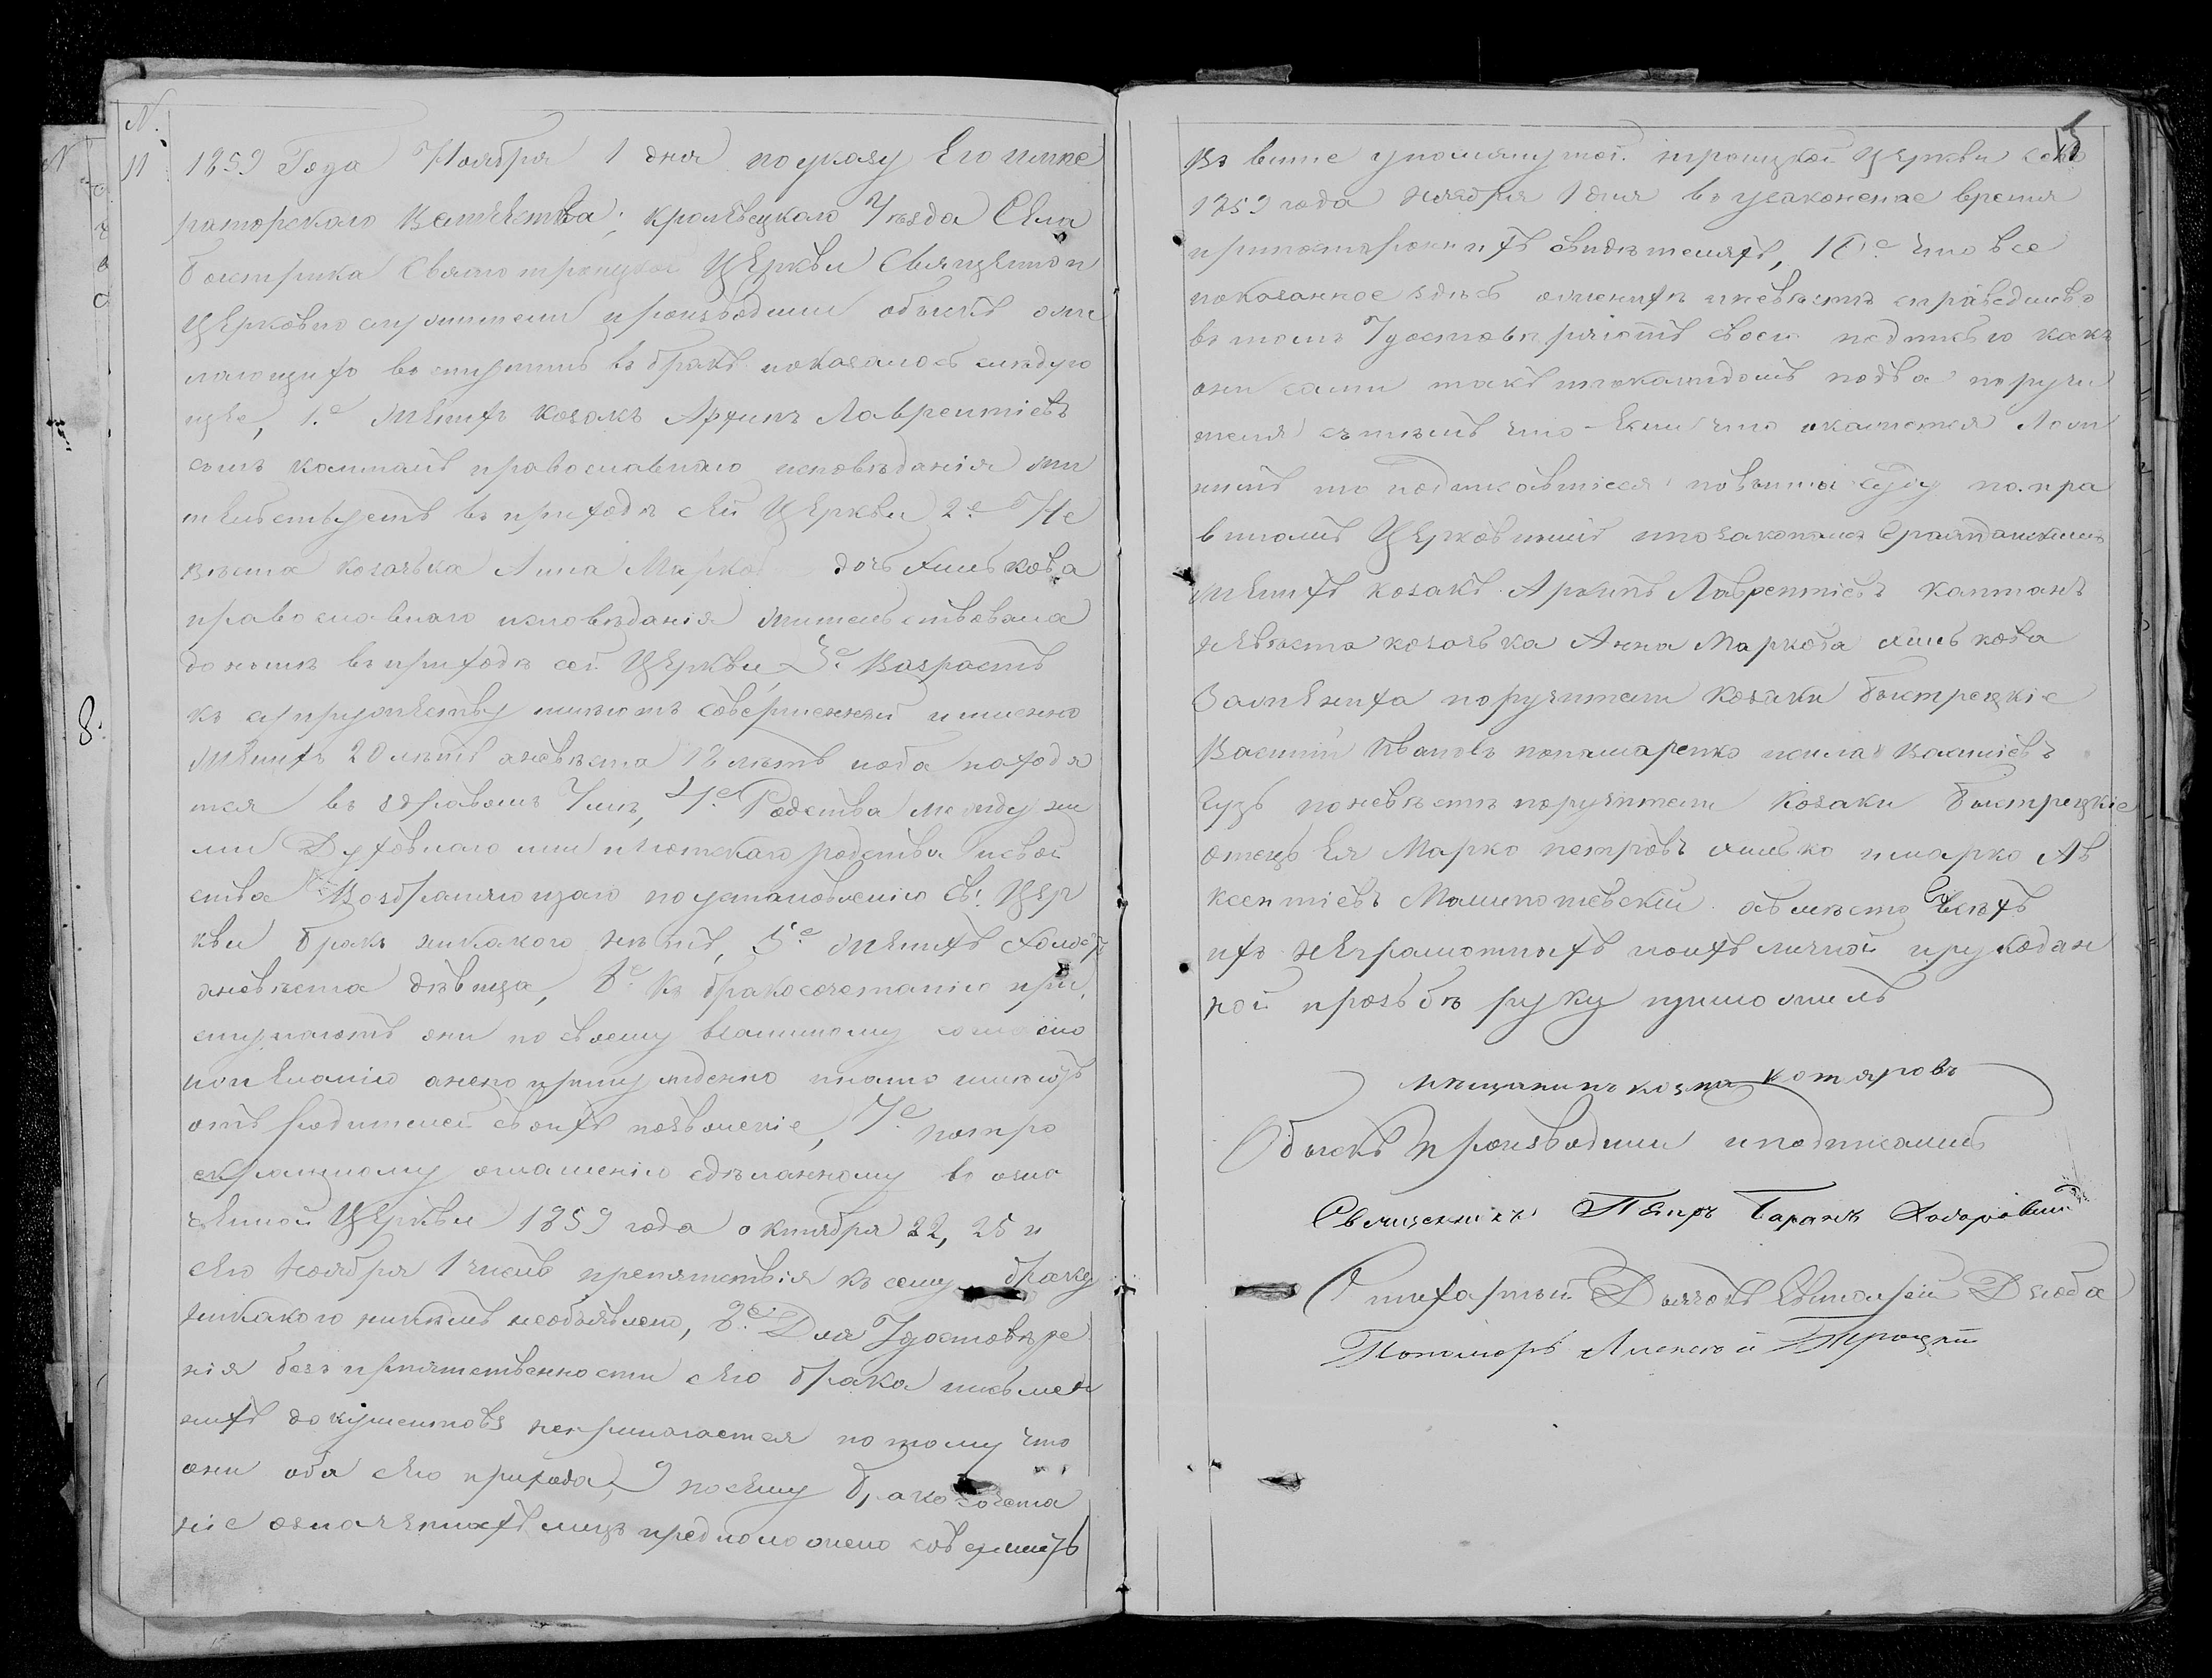 N.
11 1859 Года Ноября 1 дня по указу Его импе
раторскаго Величества; кролевецкаго Уезда Села
быстрика Святотроицкой Церкви Священно и
Церковно служители производили обыскъ о же
лающихъ вступить въ бракъ показалось следую
щее, 1.е Женихъ козакъ Архипъ Лаврентіевъ
сынъ каптанъ православнаго исповѣданія жи
тельствуетъ въ приходѣ сей Церкви 2.е Не
вѣста козачька Анна Марко дочь
православнаго исповѣданія жительствовала
до нынѣ въ приходѣ сей Церкви 3.е Возрастъ
къ супружеству имѣютъ совершенный и именно
Женихъ 20 лѣтъ а невѣста 18 летъ и оба находя
тся въ здравомъ Умѣ, 4.е Родства между ни
ми Духовнаго или плотскаго родства и свой
ства Возбраняющаго по установленію св: Цер
кви бракъ никакого нѣтъ, 5.е Женихъ холостъ
а невѣста дѣвица, 6.е Къ бракосочетанію при
ступаютъ они по своему взаимному согласію
и желанію а не по принужденно и на то имѣютъ
отъ родителей своихъ позволеніе, 7.е по тро
екратному оглашенію сдѣланному въ озна
ченной Церкви 1859 года октября 22, 25 и
сего ноября 1 числъ препятствія къ сему браку
никакого никемъ необъявлено, 8.е Для Удостовѣре
нія безпрепятственности сего брака письмен
нихъ документовъ неприлагается потому что
они оба сего прихода, 9 по сему бракосочета
ніе означенныхъ лицъ предположено совершить
8.
15
Въ више упомянутой троицкой Церкви сего
1859 года ноября 1 дня въ узаконенное время
при постороннихъ свидѣтеляхъ, 10.е что все
показанное здѣсь о женихѣ и невѣстѣ справедливо
въ томъ Удостоверяютъ своею подписью какъ
они сами такъ и по каждомъ по два поручи
теля съ тѣмъ что Если что окажется Лож
нымъ то подписавшіеся повинны суду по пра
виламъ Церковнымъ и по законамъ Гражданскимъ
женихъ козакъ Архипъ Лаврентіевъ каптанъ
невѣста козачька Анна Маркова
За жениха поручители козаки быстрецкіе
Василій Ивановъ понамаренко и
гузь по невѣстѣ поручители Козаки быстрецкіе
отецъ Ея Марко петровъ и марко Ав
ксентіевъ а вместо всѣхъ
ихъ неграмотныхъ по ихъ личной и рукодан
ной прозьбѣ руку приложилъ
мещанинъ козма котляровъ
Обыскъ производили и подписались
Священникъ Петръ Таранъ
Стихарный Дьячокъ Дзюба
Пономарь Алексей Троцкій